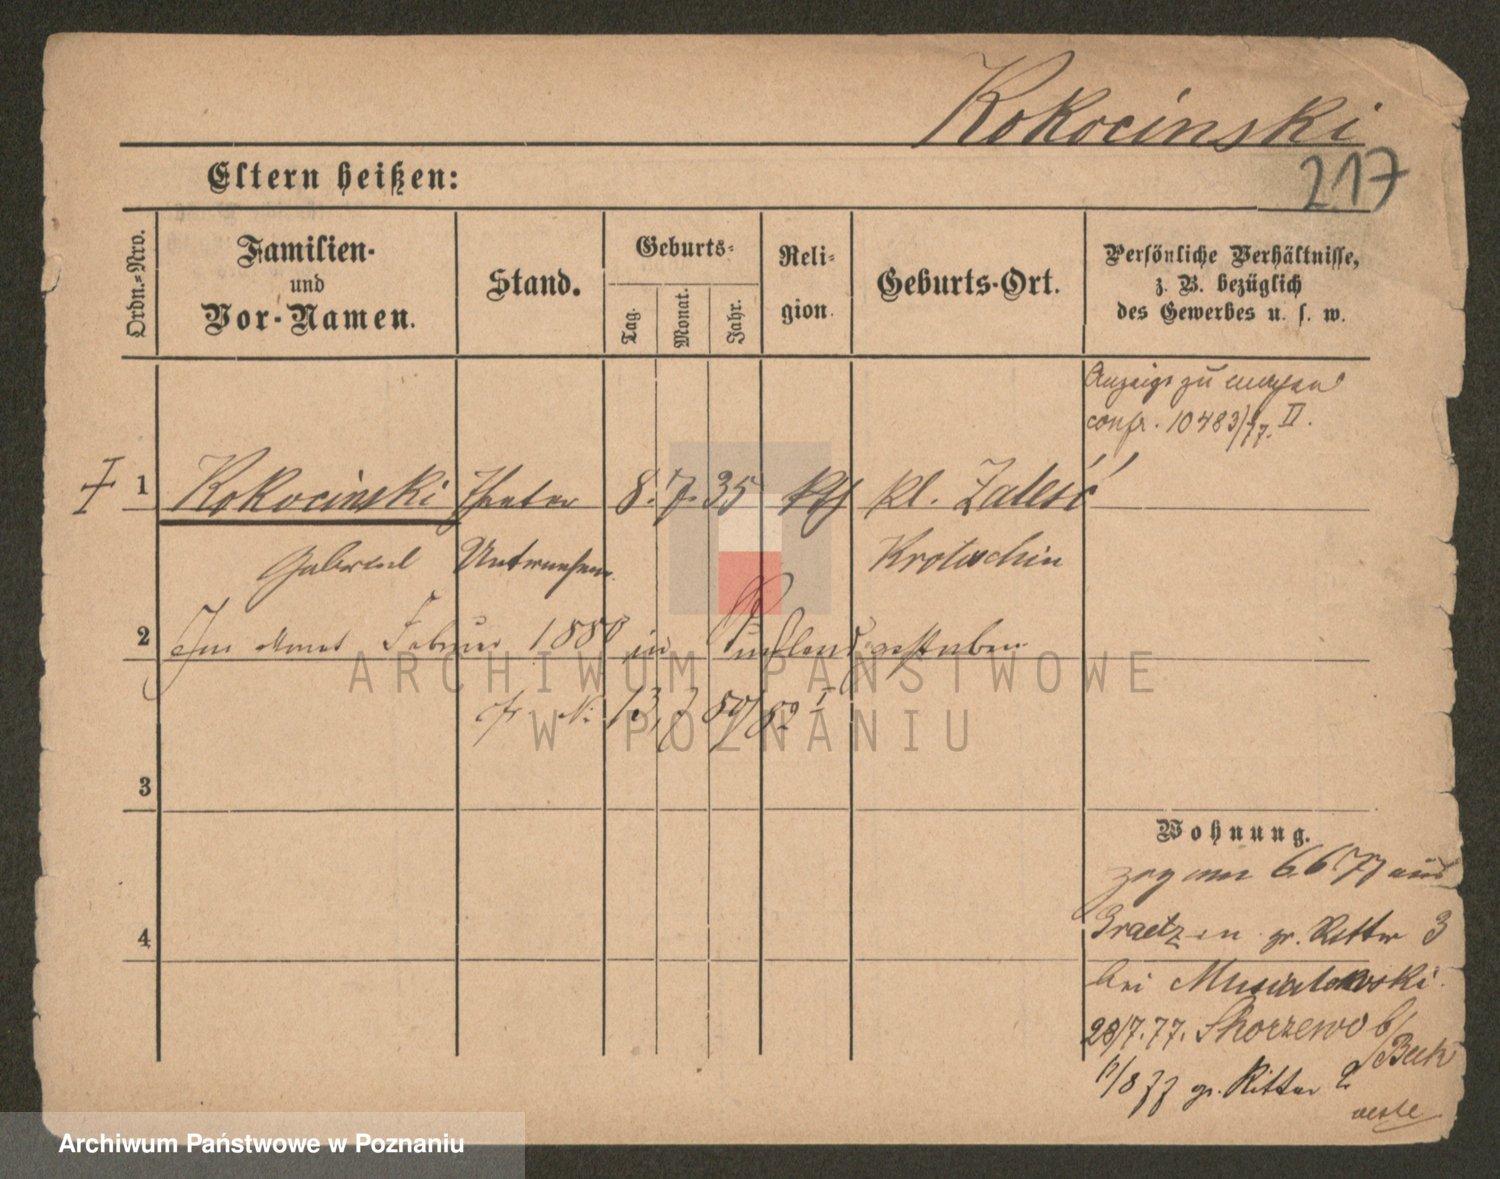 Kokocinski
217
Eltern heißen:
Ordn.-Nro.
Familien-
und
Vor-Namen.
Stand.
Geburts-
Tag.
Monat.
Jahr.
Reli-
gion.
Geburts-Ort.
Persönliche Verhältnisse,
z. B. bezüglich
des Gewerbes u. s. w.
Anzeige zu machen
confr. 10483/77. II.
1 Kokocinski Theater 8. 7. 35 kth kl. Zalesć
Gabriel Unternehmer Krotoschin
2 Im Monat Februar 1880 in Rußland gestorben
cfr. N: 13,7 80/82 I
3
Wohnung.
zog am 6 6 77 aus
4
Graetz en gr. Ritter 3
bei Musialowski.
28/7. 77. Skorzewo b/
Buk
/8 77 gr. Ritter 2
ARCHIWUM PAŃSTWOWE
W POZNANIU
Archiwum Państwowe w Poznaniu